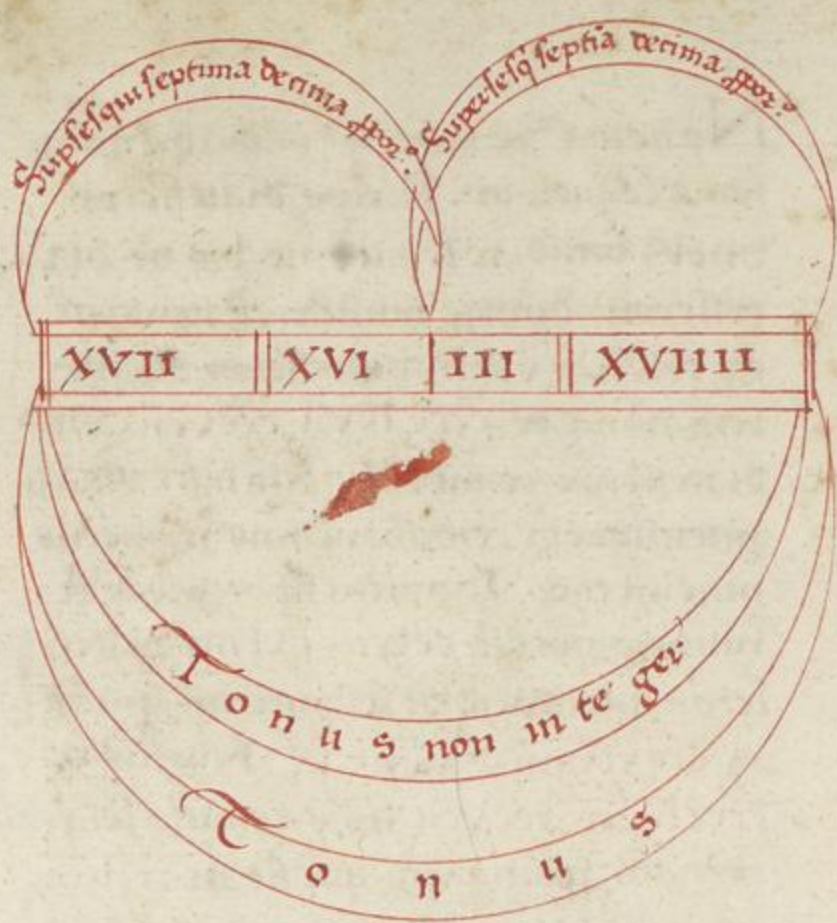 Supsesqui septima decima ꝓpor.
Super sesq̄ septīa decima ꝓpor.
XVII XVI III XVIIII
Tonus non integer
Tonus